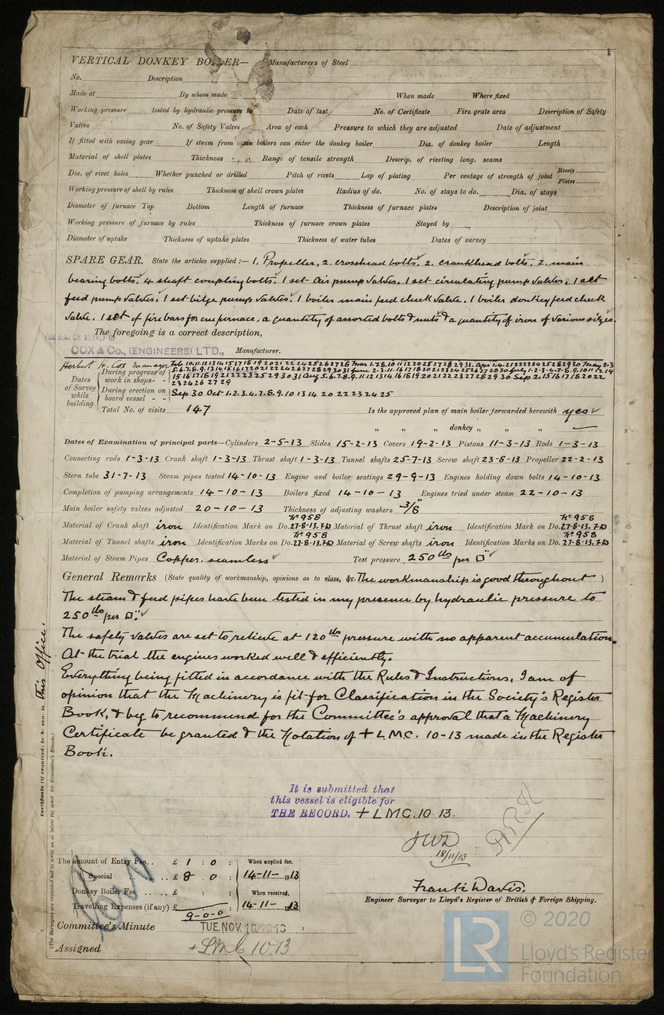 VERTICAL DONKEY BOILER— Manufacturers of Steel
No. Description
Made at By whom made When made Where fixed
Working pressure tested by hydraulic pressure to Date of test No. of Certificate Fire grate area Description of Safety
Valves No. of Safety Valves Area of each Pressure to which they are adjusted Date of adjustment
If fitted with easing gear If steam from main boilers can enter the donkey boiler Dia. of donkey boiler Length
Material of shell plates Thickness Range of tensile strength Descrip. of riveting long. seams
Dia. of rivet holes Whether punched or drilled Pitch of rivets Lap of plating Per centage of strength of joint Rivets Plates
Working pressure of shell by rules Thickness of shell crown plates Radius of do. No. of stays to do. Dia. of stays
Diameter of furnace Top Bottom Length of furnace Thickness of furnace plates Description of joint
Working pressure of furnace by rules Thickness of furnace crown plates Stayed by
Diameter of uptake Thickness of uptake plates Thickness of water tubes Dates of survey
SPARE GEAR. State the articles supplied:— 1. Propeller, 2. crosshead bolts, 2. crankhead bolts, 2. main
bearing bolts, 4 shaft coupling bolts, 1 set Air pump valves, 1 set circulating pump valves, 1 set
feed pump valves, 1 set bilge pump valves, 1 boiler main feed check valve, 1 boiler donkey feed check
valve. 1 set of fire bars for one furnace, a quantity of assorted bolts & nuts & a quantity of iron of various sizes.
The foregoing is a correct description,
COX & Co., (ENGINEERS) LTD., Manufacturer.
Herbert H. Cox manager
Dates of Survey while building
During progress of work in shops - -
During erection on board vessel - - -
Sep 30 Oct 1.2.3.4.7.8.9.10.13 14 20 22 23 24 25
Total No. of visits 147 Is the approved plan of main boiler forwarded herewith yes
" " " donkey " " "
Dates of Examination of principal parts—Cylinders 2-5-13 Slides 15-2-13 Covers 19-2-13 Pistons 11-3-13 Rods 1-3-13
Connecting rods 1-3-13 Crank shaft 1-3-13 Thrust shaft 1-3-13 Tunnel shafts 25-7-13 Screw shaft 23-8-13 Propeller 22-2-13
Stern tube 31-7-13 Steam pipes tested 14-10-13 Engine and boiler seatings 29-9-13 Engines holding down bolts 14-10-13
Completion of pumping arrangements 14-10-13 Boilers fixed 14-10-13 Engines tried under steam 22-10-13
Main boiler safety valves adjusted 20-10-13 Thickness of adjusting washers 3/8"
Material of Crank shaft iron Identification Mark on Do. No 958 27-8-13. F.D Material of Thrust shaft iron Identification Mark on Do. No 958 27-8-13. F.D
Material of Tunnel shafts iron Identification Marks on Do. No 958 27-8-13. F.D Material of Screw shafts iron Identification Marks on Do. No 958 27-8-13. F.D
Material of Steam Pipes Copper. seamless Test pressure 250 lbs per □"
General Remarks (State quality of workmanship, opinions as to class, &c. The workmanship is good throughout)
The steam & feed pipes have been tested in my presence by hydraulic pressure to
250 lbs per □".
The safety valves are set to relieve at 120 lbs pressure with no apparent accumulation.
At the trial the engines worked well & efficiently.
Everything being fitted in accordance with the Rules & Instructions, I am of
opinion that the Machinery is fit for Classification in the Society's Register
Book, & beg to recommend for the Committee's approval that a Machinery
Certificate be granted & the Notation of + LMC. 10-13 made in the Register
Book.
It is submitted that
this vessel is eligible for
THE RECORD. + LMC. 10.13.
18/11/13
The amount of Entry Fee.. £ 1 : 0 : When applied for,
Special £ 8 : 0 : 14-11-1913
Donkey Boiler Fee £ : : When received,
Travelling Expenses (if any) £ : : 14-11-1913
9-0-0
Frank Davis.
Engineer Surveyor to Lloyd's Register of British & Foreign Shipping.
Committee's Minute TUE. NOV. 18 1913
Assigned + LMC 10.13
this Office.
© 2020
LR Lloyd's Register
Foundation